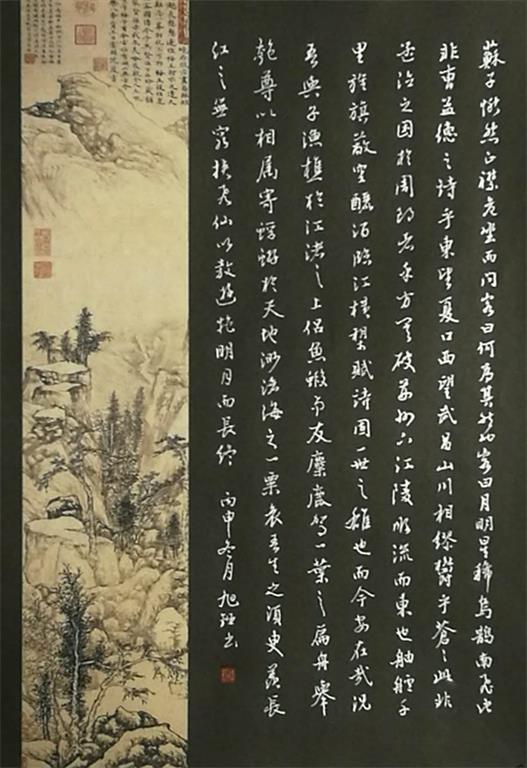 蘇子愀然正襟危坐而問客曰何為其然也客曰月明星稀烏鵲南飛此
非曹孟德之詩乎東望夏口西望武昌山川相繆鬱乎蒼〻此非
孟德之困於周郎者乎方其破荊州下江陵順流而東也舳艫千
里旌旗蔽空釃酒臨江橫槊賦詩固一世之雄也而今安在哉況
吾與子漁樵於江渚之上侶魚蝦而友麋鹿駕一葉之扁舟舉
匏尊以相屬寄蜉蝣於天地渺滄海之一粟哀吾生之須臾羨長
江之無窮挾飛仙以遨遊抱明月而長終 丙申冬月旭書